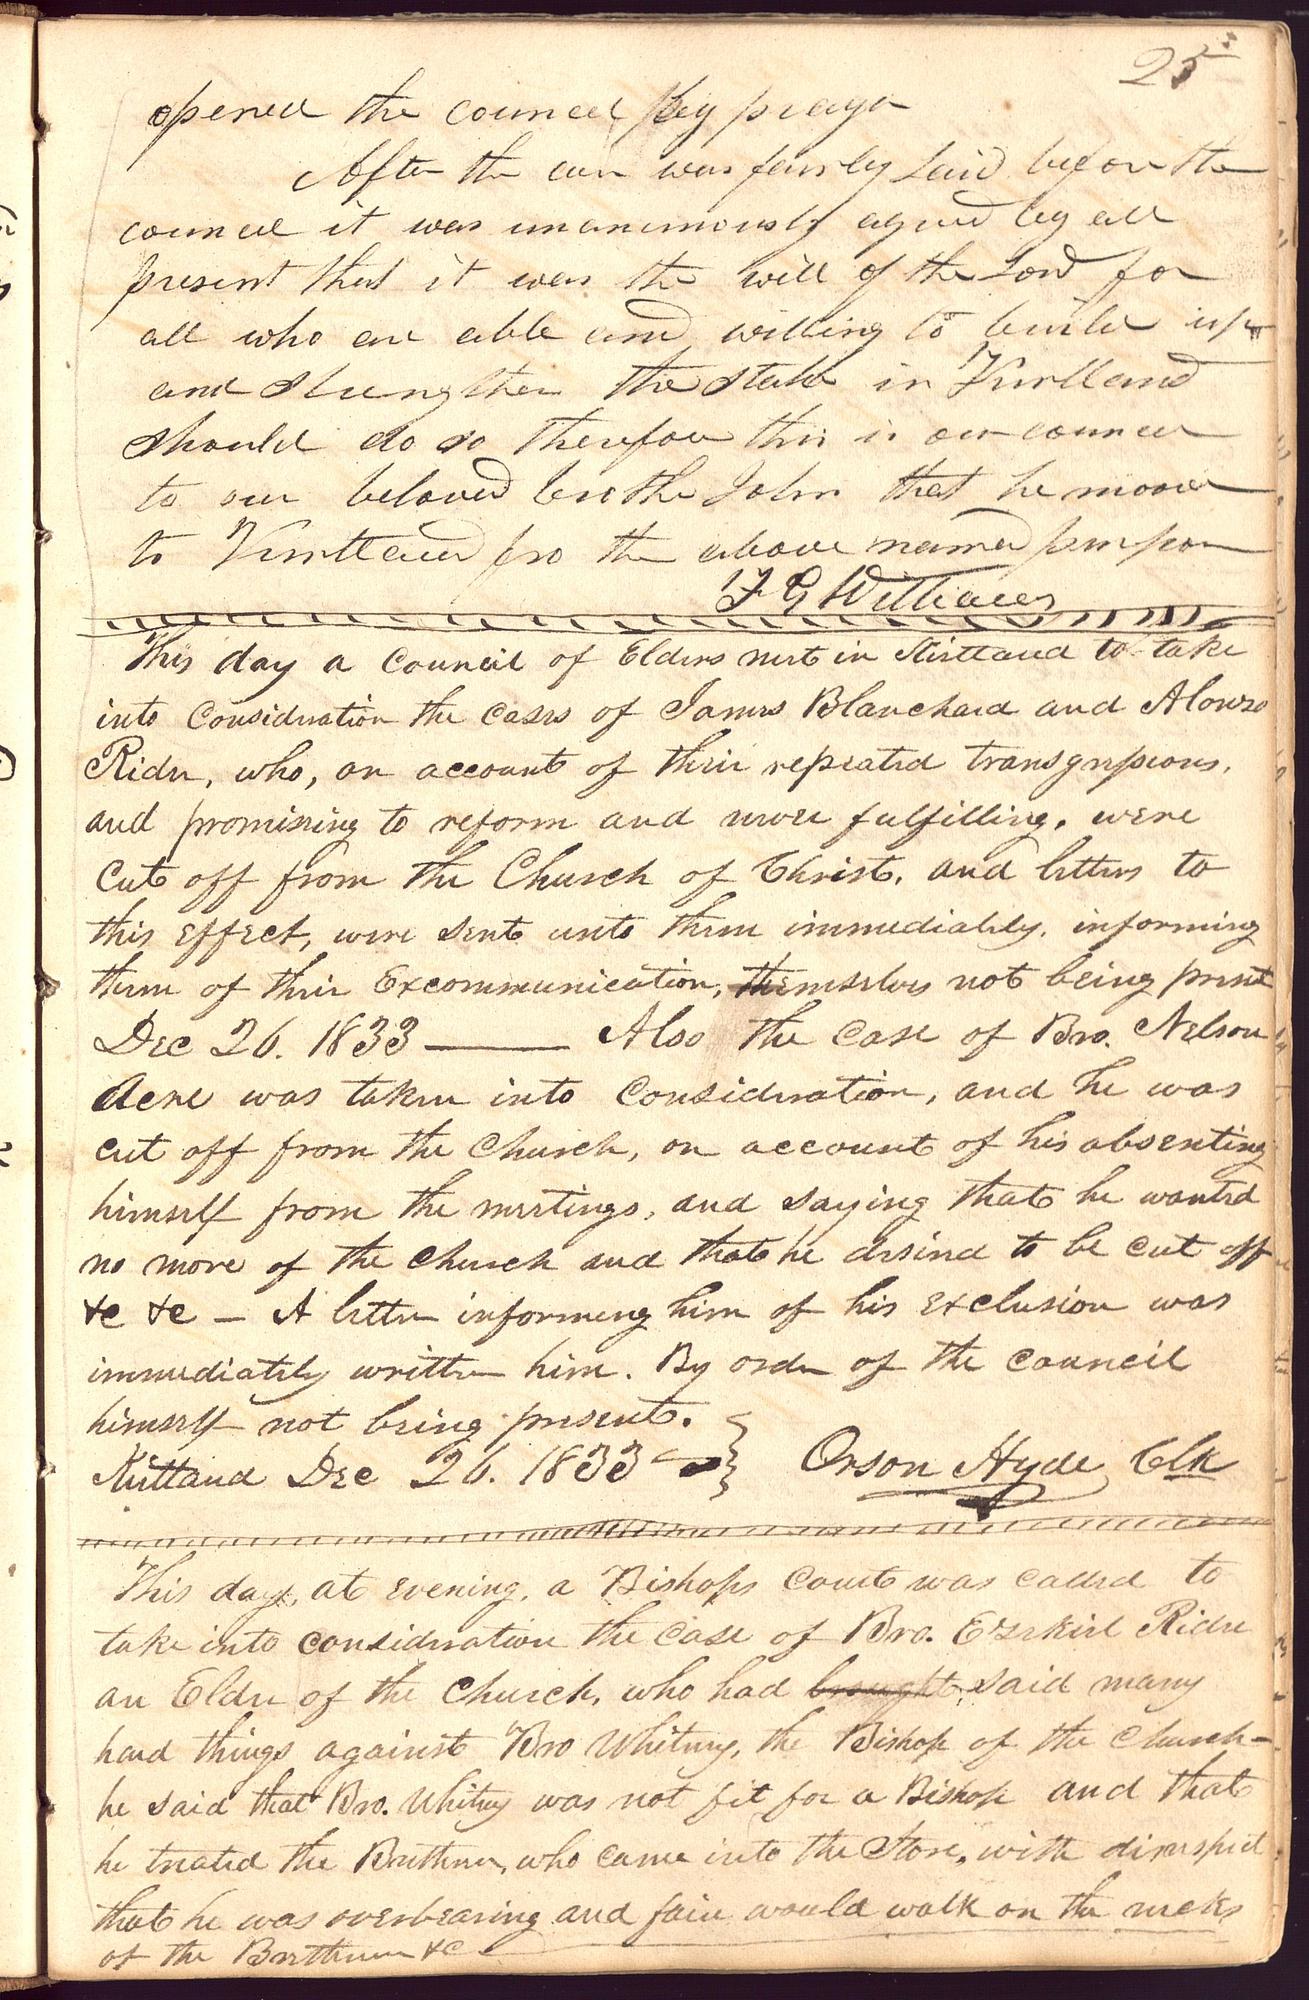 25
opened the council by prayer
After the case was fairly laid before the
council it was unanimously agreed by all
present that it was the will of the Lord for
all who are able and willing to build up
and strengthen the stake in Kirtland
should do so therefore this is our council
to our beloved brother John that he moove
to Kirtland fro the above named purpose
F G Williams
This day a council of Elders met in Kirtland to take
into consideration the cases of James Blanchard and Alonzo
Rider, who, on account of their repeated transgressions,
and promising to reform and never fulfilling, were
cut off from the Church of Christ, and letters to
this effect, were sent unto them immediately, informing
them of their Excommunication, themselves not being present
Dec 26. 1833 — Also the case of Bro. Nelson
Acre was taken into consideration, and he was
cut off from the Church, on account of his absenting
himself from the meetings, and saying that he wanted
no more of the church and that he desired to be cut off
&c &c — A letter informing him of his exclusion was
immediately written him. By order of the council
himself not being present.
Kirtland Dec 26. 1833 — Orson Hyde Clk
This day, at evening, a Bishops court was called to
take into consideration the case of Bro. Ezekiel Rider
an Elder of the Church, who had brought said many
hard things against Bro Whitney, the Bishop of the Church—
he said that Bro. Whitney was not fit for a Bishop and that
he treated the Brethren, who came into the Store, with disrespect
that he was overbearing and fain would walk on the necks
of the Brethren &c